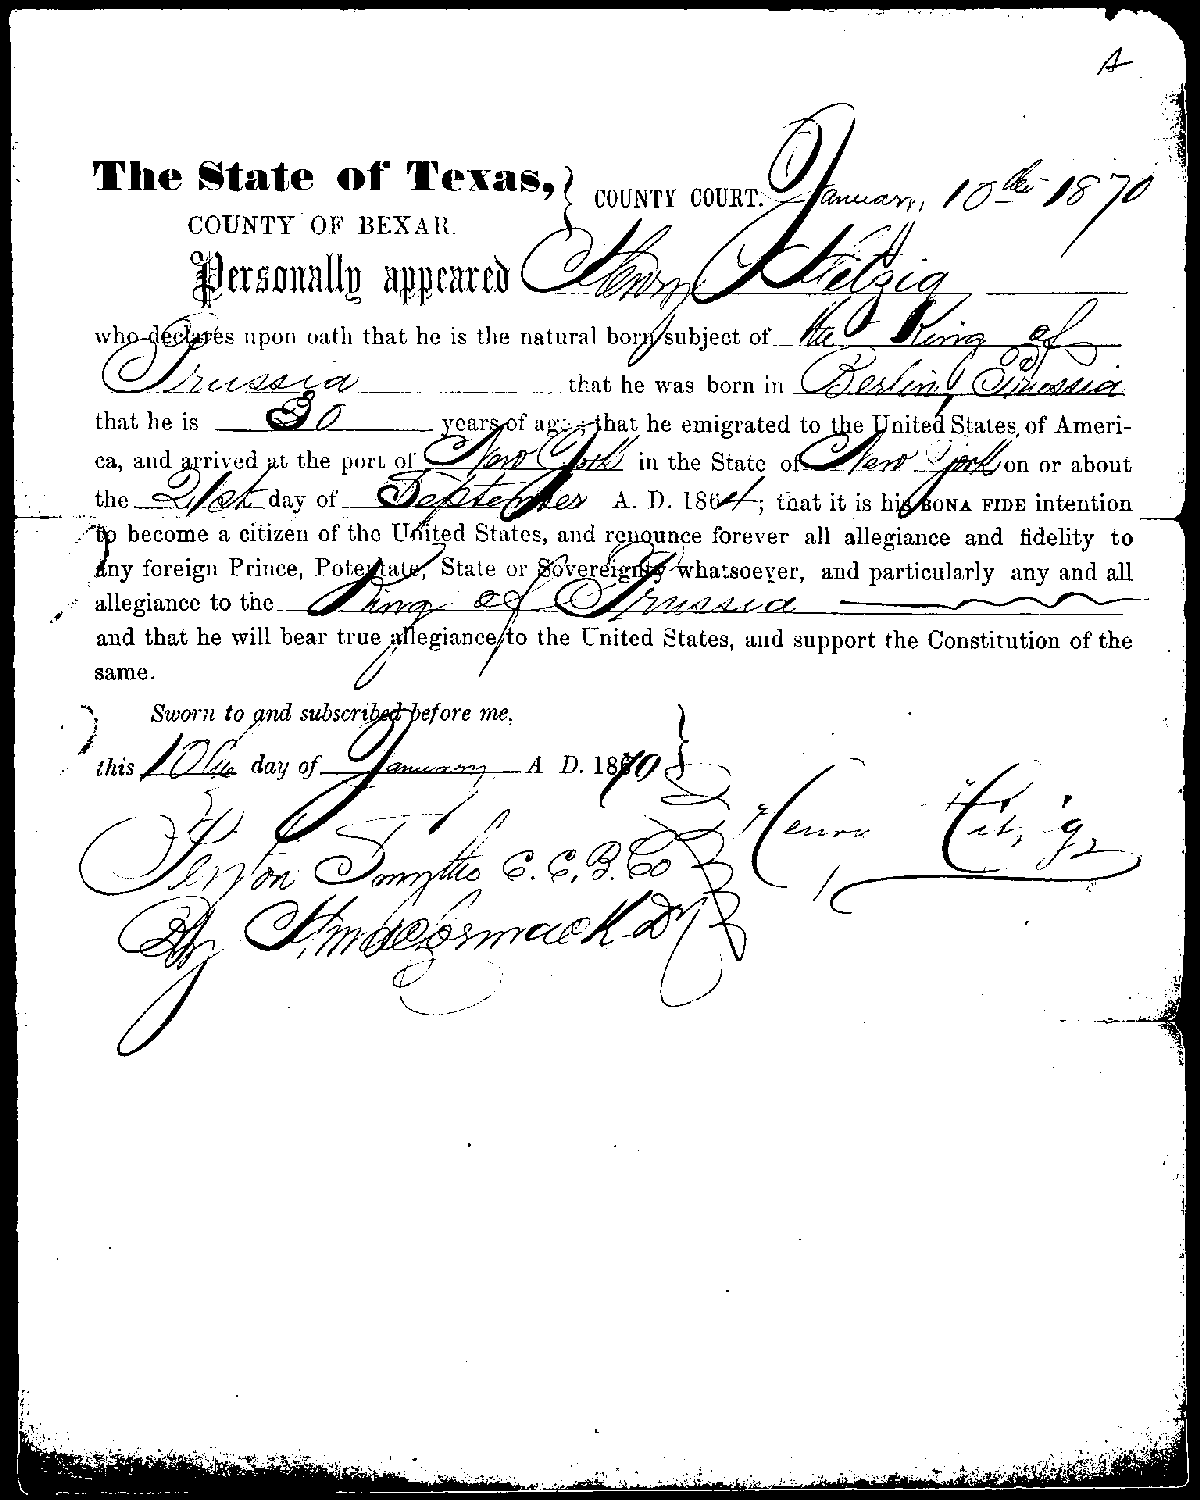 A
The State of Texas, } COUNTY COURT. January, 10th 1870
COUNTY OF BEXAR.
Personally appeared Henry Hetzig
who declares upon oath that he is the natural born subject of the King of
Prussia that he was born in Berlin, Prussia
that he is 30 years of age; that he emigrated to the United States, of Ameri-
ca, and arrived at the port of New York in the State of New York on or about
the 21st day of September A. D. 1864; that it is his BONA FIDE intention
to become a citizen of the United States, and renounce forever all allegiance and fidelity to
any foreign Prince, Potentate, State or Sovereignty whatsoever, and particularly any and all
allegiance to the King of Prussia
and that he will bear true allegiance to the United States, and support the Constitution of the
same.
Sworn to and subscribed before me,
this 10th day of January A D. 1870 }
Henry
Smythe C. C. B. Co
By McCormack Dy